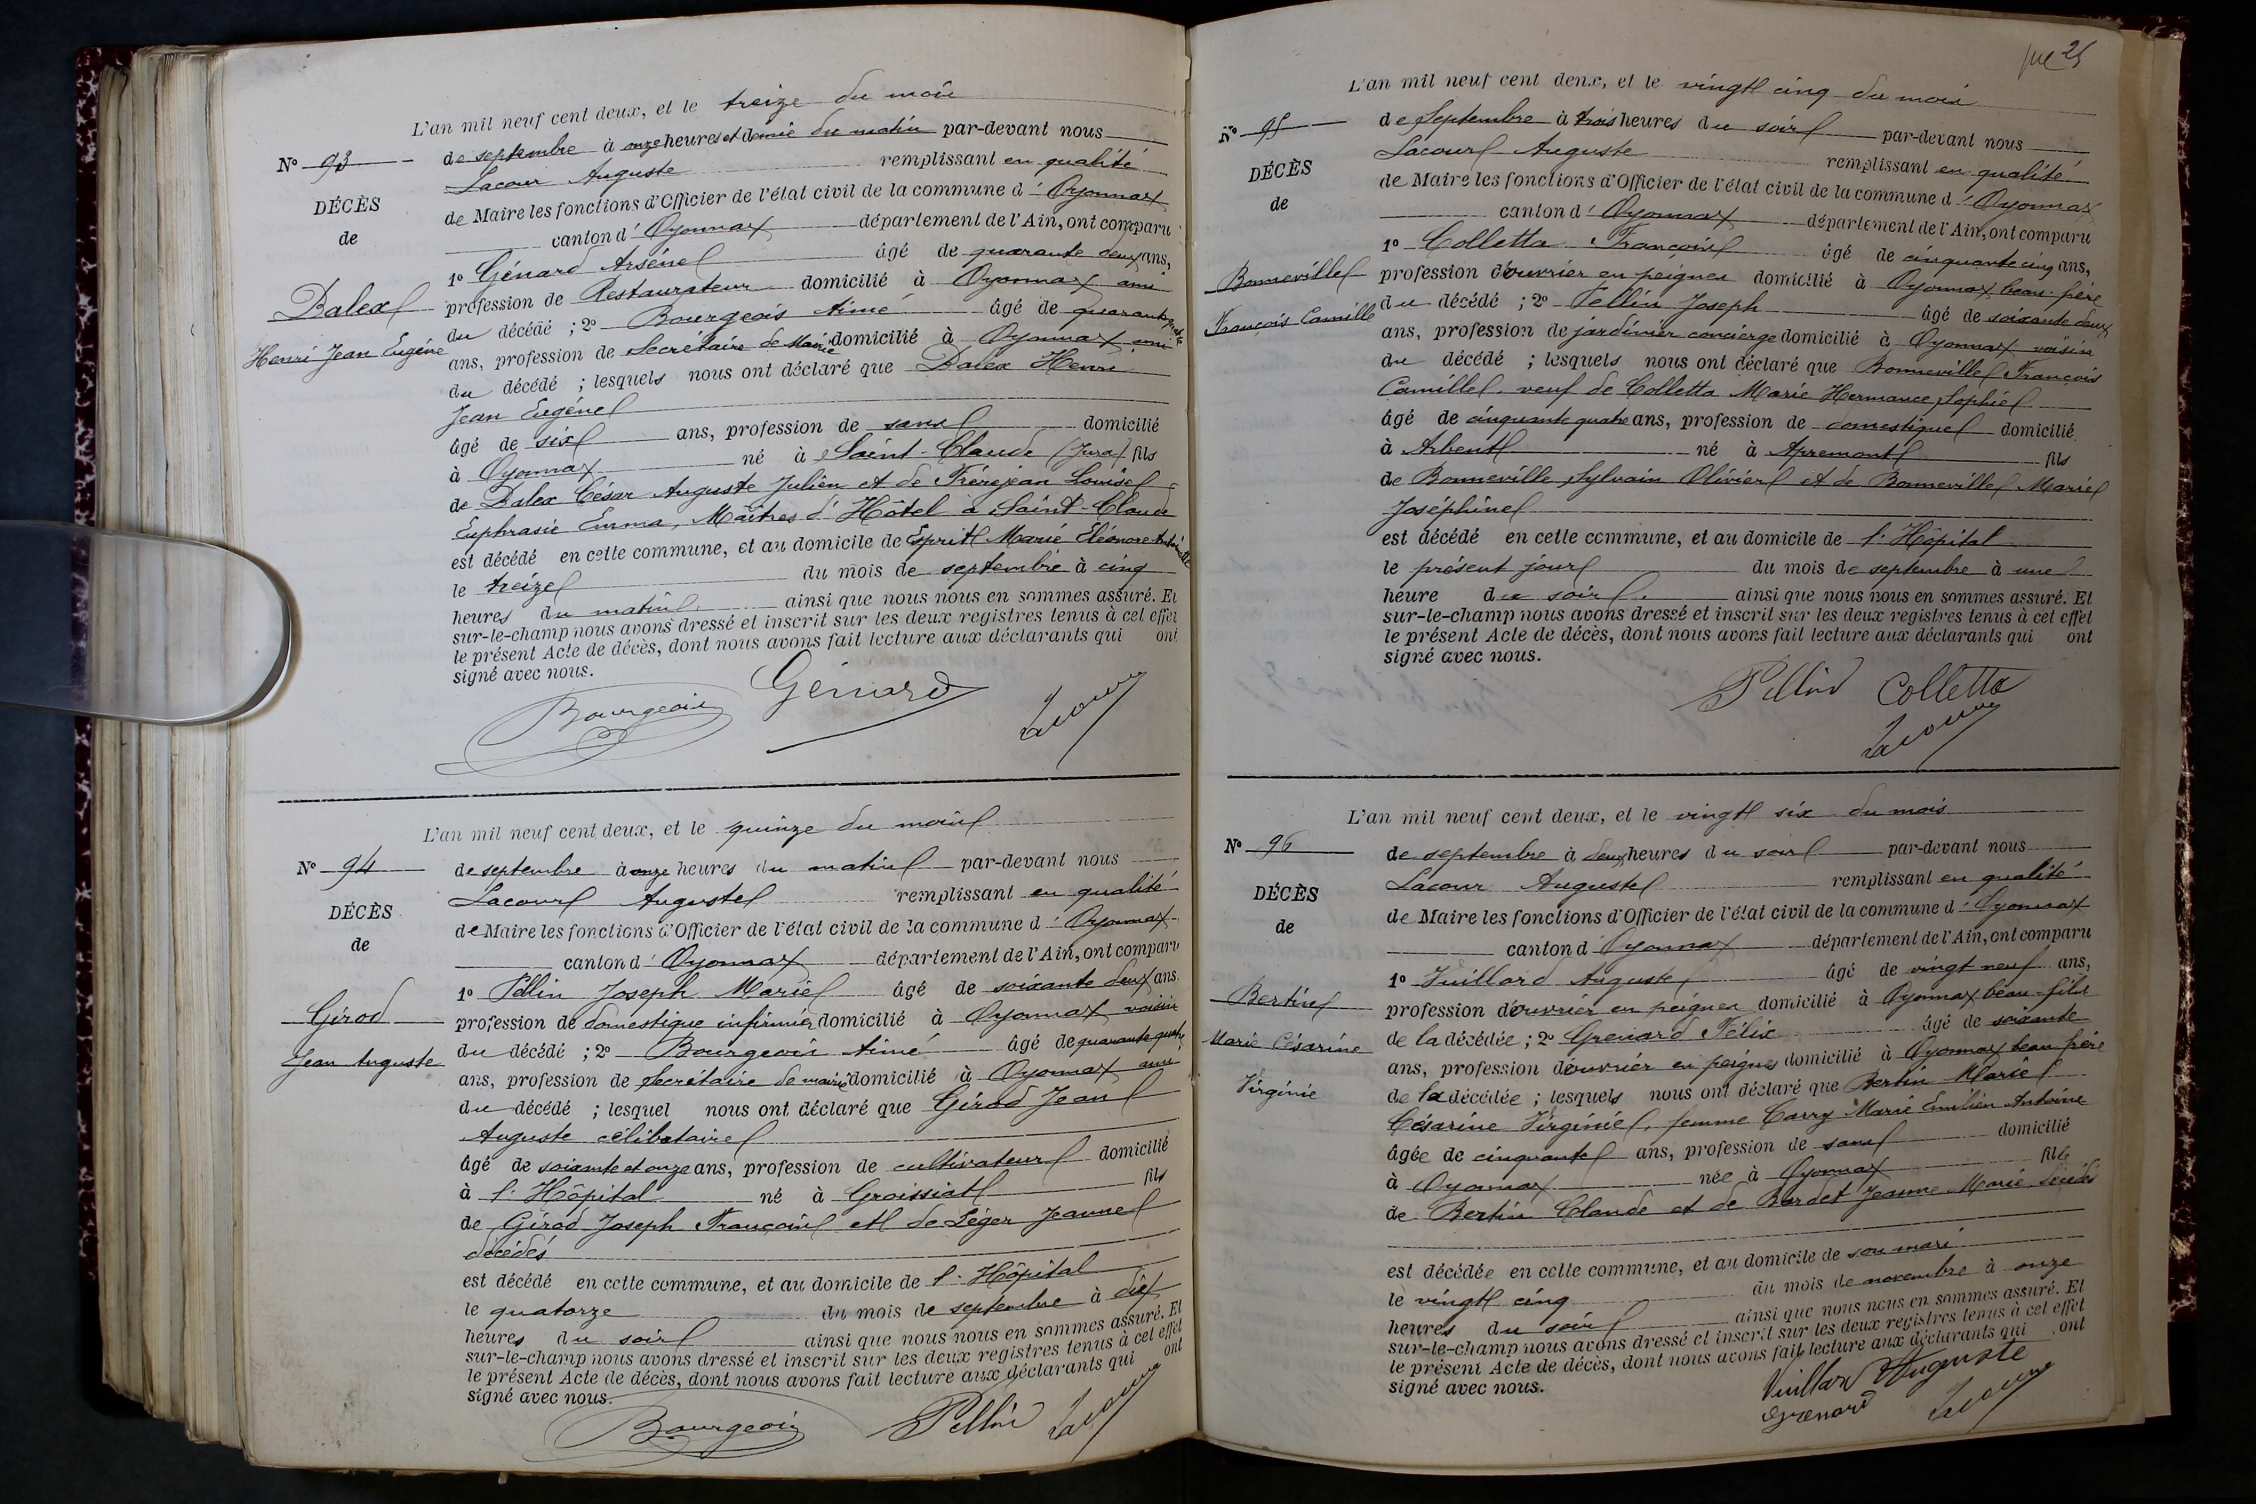 L'an mil neuf cent deux, et le treize du mois
N° 93
de septembre à onze heures et demie du matin par-devant nous
Lacour Auguste remplissant en qualité
DÉCÈS
de Maire les fonctions d'Officier de l'état civil de la commune d'Oyonnax
de
canton d'Oyonnax département de l'Ain, ont comparu
1° Génard Arsène âgé de quarante deux ans,
Dalex
profession de Restaurateur domicilié à Oyonnax ami
du décédé ; 2° Bourgeois Aimé âgé de quarante quatre
Henri Jean Eugène
ans, profession de Secrétaire de Mairie domicilié à Oyonnax ami
du décédé ; lesquels nous ont déclaré que Dalex Henri
Jean Eugène
âgé de six ans, profession de sans domicilié
à Oyonnax né à Saint-Claude (Jura) fils
de Dalex César Auguste Julien et de Frèrejean Louise
Euphrasie Emma, Maîtres d'Hôtel à Saint-Claude
est décédé en cette commune, et au domicile de Esprit Marie Eléonore Antoinette
le treize du mois de septembre à cinq
heures du matin ainsi que nous nous en sommes assuré. Et
sur-le-champ nous avons dressé et inscrit sur les deux registres tenus à cet effet
le présent Acte de décès, dont nous avons fait lecture aux déclarants qui ont
signé avec nous.
Bourgeois Génard Lacour
L'an mil neuf cent deux, et le quinze du mois
N° 94
de septembre à onze heures du matin par-devant nous
Lacour Auguste remplissant en qualité
DÉCÈS
de Maire les fonctions d'Officier de l'état civil de la commune d'Oyonnax
de
canton d'Oyonnax département de l'Ain, ont comparu
1° Pellin Joseph Marie âgé de soixante deux ans
Girod
profession de domestique infirmier domicilié à Oyonnax voisin
Jean Auguste
du décédé ; 2° Bourgeois Aimé âgé de quarante quatre
ans, profession de Secrétaire de mairie domicilié à Oyonnax ami
du décédé ; lesquel nous ont déclaré que Girod Jean
Auguste célibataire
âgé de soixante et onze ans, profession de cultivateur domicilié
à l'Hôpital né à Groissiat fils
de Girod Joseph François et de Léger Jeanne
décédés
est décédé en cette commune, et au domicile de l'Hôpital
le quatorze du mois de septembre à dix
heures du soir ainsi que nous nous en sommes assuré. Et
sur-le-champ nous avons dressé et inscrit sur les deux registres tenus à cet effet
le présent Acte de décès, dont nous avons fait lecture aux déclarants qui ont
signé avec nous.
Bourgeois Pellin Lacour
25
L'an mil neuf cent deux, et le vingt cinq du mois
N° 95
de Septembre à trois heures du soir par-devant nous
Lacour Auguste remplissant en qualité
DÉCÈS
de Maire les fonctions d'Officier de l'état civil de la commune d'Oyonnax
de
canton d'Oyonnax département de l'Ain, ont comparu
1° Colletta François âgé de cinquante cinq ans,
Bonneville
profession d'ouvrier en peignes domicilié à Oyonnax beau-frère
François Camille
du décédé ; 2° Pellin Joseph âgé de soixante deux
ans, profession de jardinier concierge domicilié à Oyonnax voisin
du décédé ; lesquels nous ont déclaré que Bonneville François
Camille veuf de Colletta Marie Hermance Sophie
âgé de cinquante quatre ans, profession de domestique domicilié
à Arbent né à Apremont fils
de Bonneville, Sylvain Olivier et de Bonneville Marie
Joséphine
est décédé en cette commune, et au domicile de l'Hôpital
le présent jour du mois de septembre à une
heure du soir. ainsi que nous nous en sommes assuré. Et
sur-le-champ nous avons dressé et inscrit sur les deux registres tenus à cet effet
le présent Acte de décès, dont nous avons fait lecture aux déclarants qui ont
signé avec nous.
Pellin Colletta
Lacour
L'an mil neuf cent deux, et le vingt six du mois
N° 96
de septembre à deux heures du soir par-devant nous
Lacour Auguste remplissant en qualité
DÉCÈS
de Maire les fonctions d'Officier de l'état civil de la commune d'Oyonnax
de
canton d'Oyonnax département de l'Ain, ont comparu
1° Vuillard Auguste âgé de vingt neuf ans,
Bertin
profession d'ouvrier en peignes domicilié à Oyonnax beau-fils
Marie Césarine
de la décédée ; 2° Grenard Félix âgé de soixante
ans, profession d'ouvrier en peignes domicilié à Oyonnax beau frère
Virginie
de la décédée ; lesquels nous ont déclaré que Bertin Marie
Césarine Virginie, femme Carry Marie Emilien Antoine
âgée de cinquante ans, profession de sans domicilié
à Oyonnax née à Oyonnax fille
de Bertin Claude et de Bardet Jeanne Marie décédés
est décédée en cette commune, et au domicile de son mari
le vingt cinq du mois de novembre à onze
heures du soir ainsi que nous nous en sommes assuré. Et
sur-le-champ nous avons dressé et inscrit sur les deux registres tenus à cet effet
le présent Acte de décès, dont nous avons fait lecture aux déclarants qui ont
signé avec nous.
Vuillard Auguste
Grenard Lacour